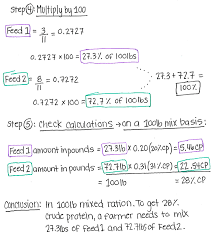 Step ④ Multiply by 100
Feed 1 = 3/11 = 0.2727
0.2727 × 100 = 27.3% of 100lbs
Feed 2 = 8/11 = 0.7272
27.3 + 72.7 = 100%
0.7272 × 100 = 72.7% of 100lbs
Step ⑤: Check calculations → on a 100lb mix basis:
Feed 1 amount in pounds = 27.3lb × 0.20 (20% CP) = 5.46CP
Feed 2 amount in pounds = 72.7lb × 0.31 (31% CP) = 22.54CP
= 100lb = 28% CP
Conclusion: In 100lb mixed ration. To get 28%
crude protein, a farmer needs to mix
27.3lbs of Feed 1 and 72.7lbs of Feed 2.